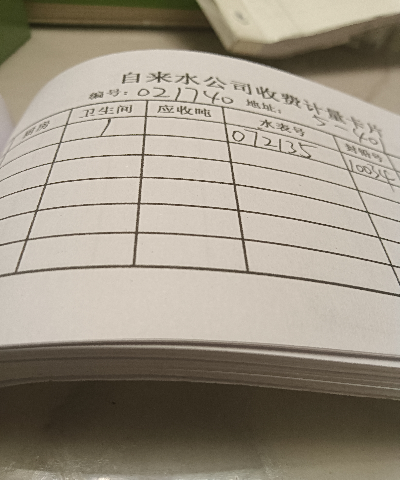 自来水公司收费计量卡片
编号: 021740 地址: 5-401
厨房 卫生间 应收吨 水表号 封铅号
1 072135 10034